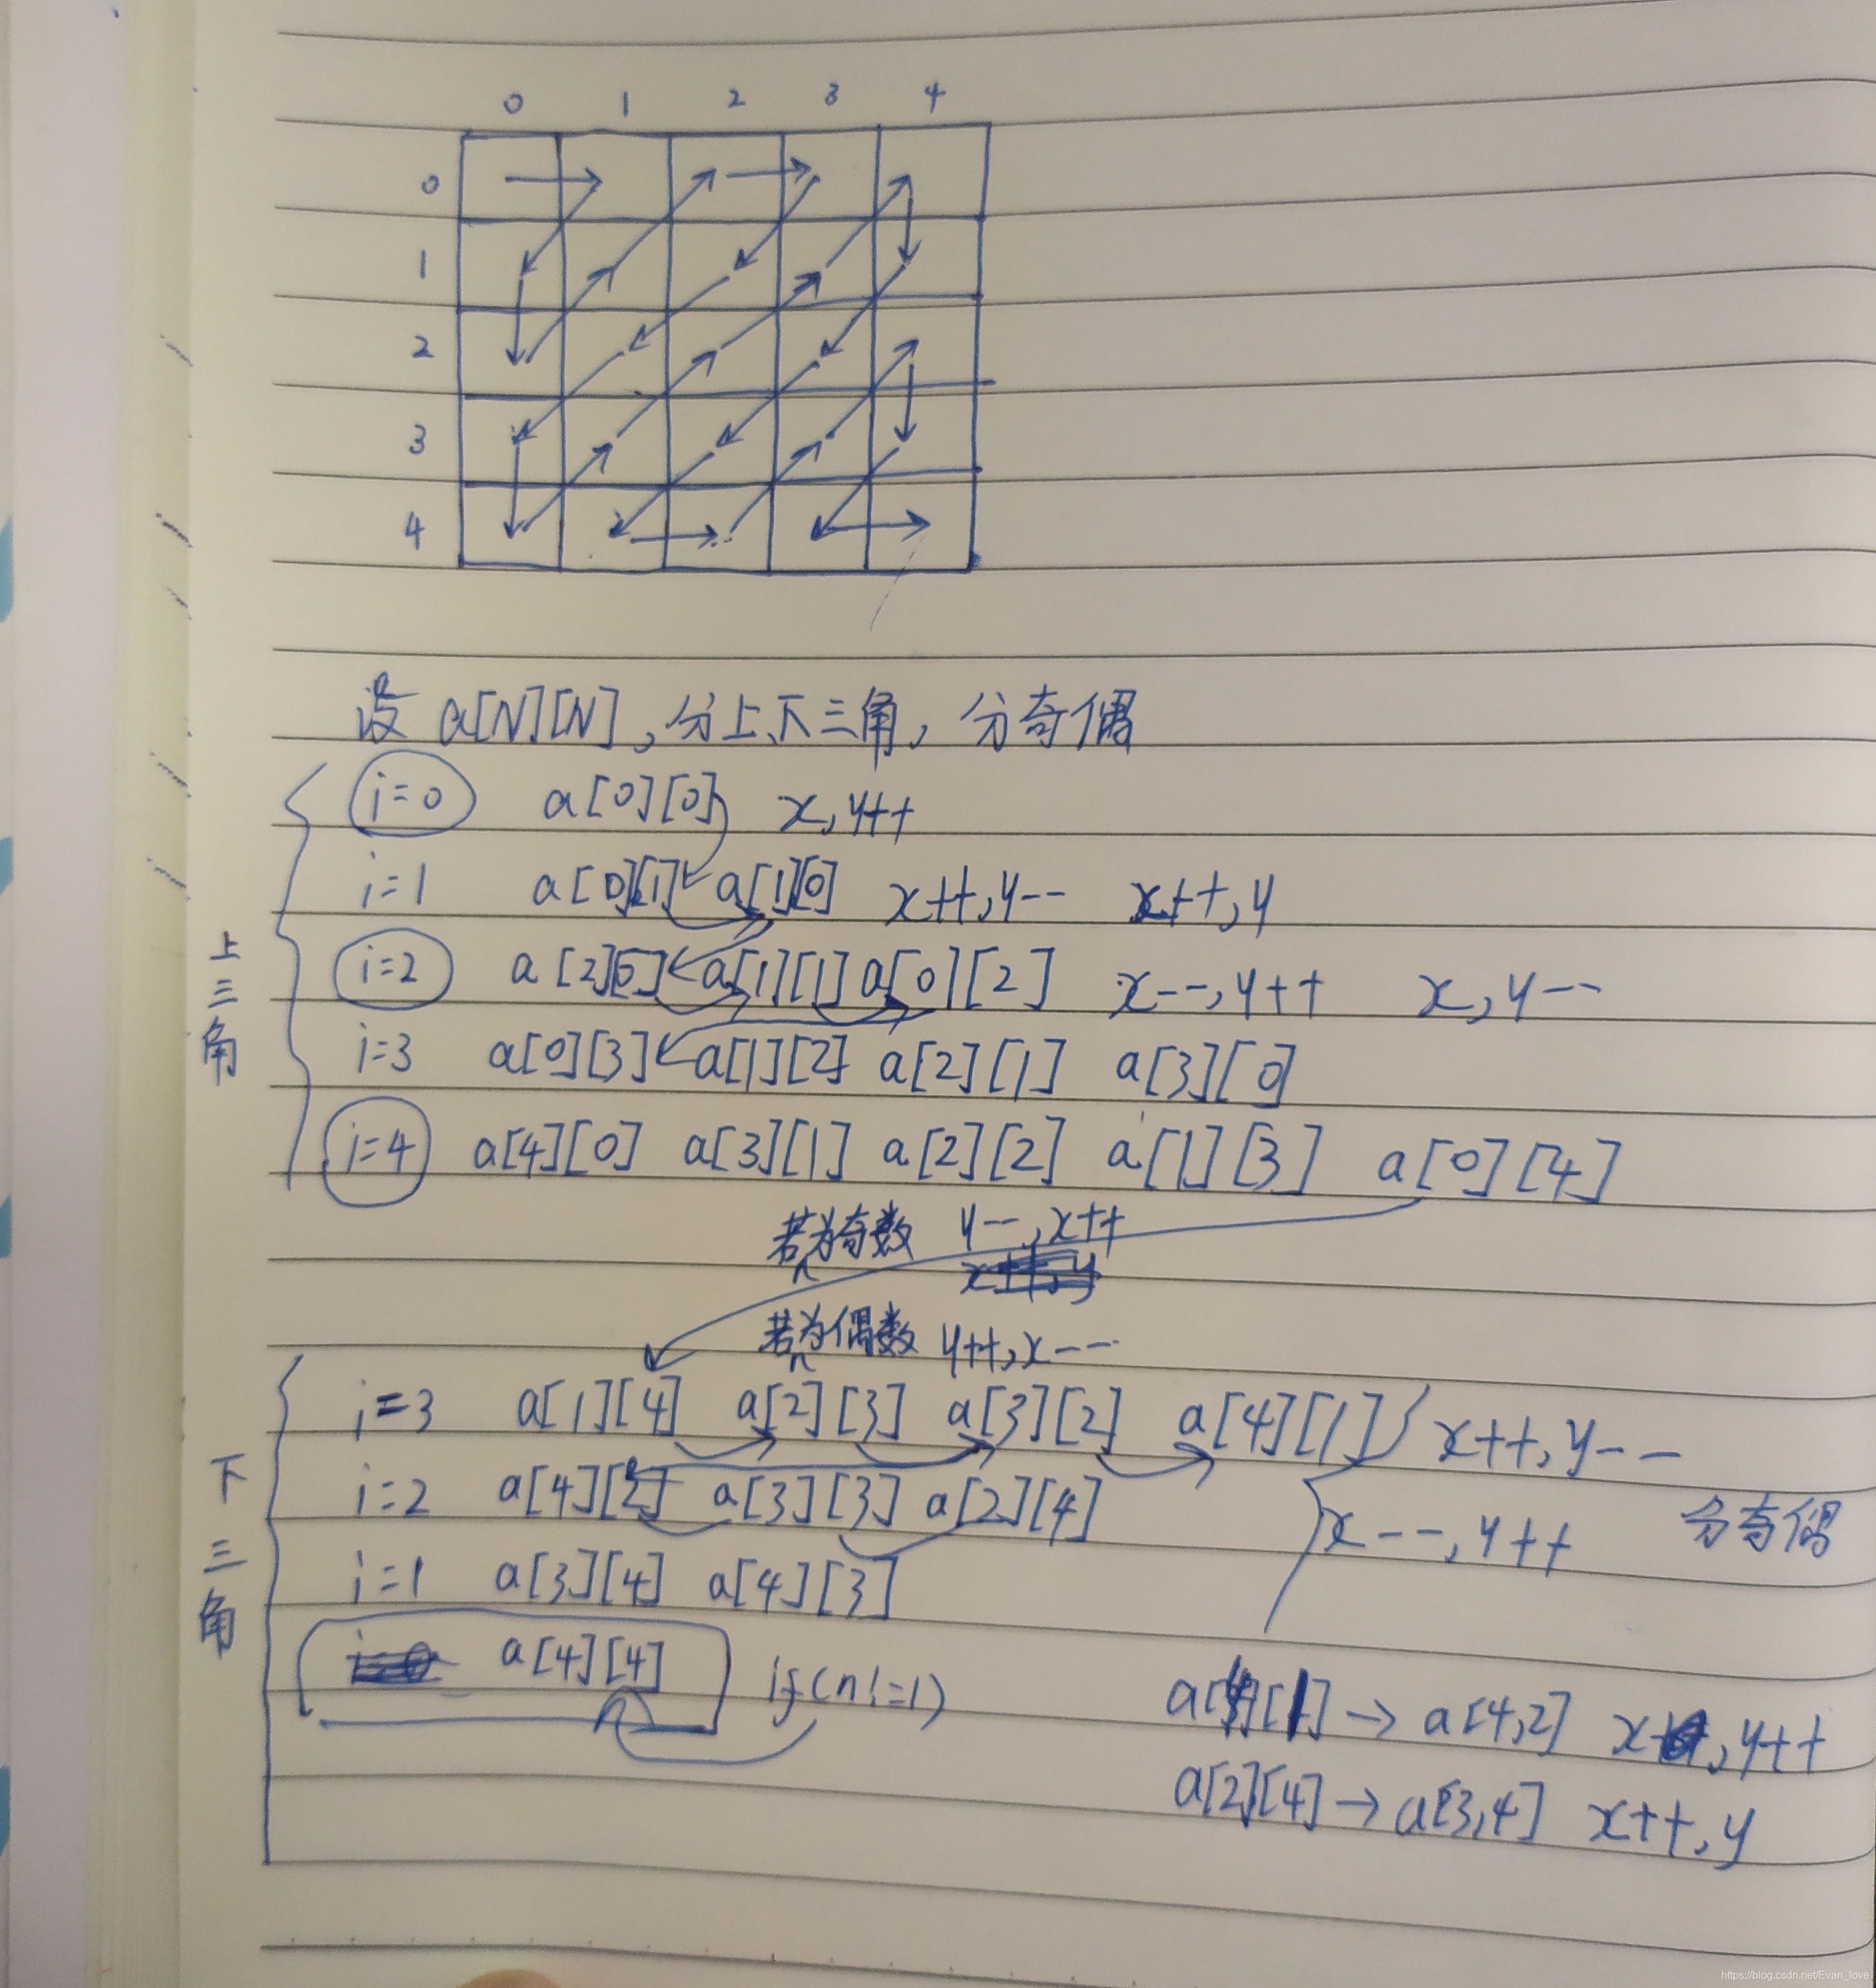 0 1 2 3 4
0
1
2
3
4
设 a[N][N],分上下三角,分奇偶
i=0 a[0][0] x,y++
i=1 a[0][1] a[1][0] x++,y-- x++,y
i=2 a[2][0] a[1][1] a[0][2] x--,y++ x,y--
i=3 a[0][3] a[1][2] a[2][1] a[3][0]
i=4 a[4][0] a[3][1] a[2][2] a[1][3] a[0][4]
上三角
若n为奇数 y--,x++
若n为偶数 y++,x--
i=3 a[1][4] a[2][3] a[3][2] a[4][1] x++,y--
i=2 a[4][2] a[3][3] a[2][4] x--,y++ 分奇偶
i=1 a[3][4] a[4][3]
下三角
a[4][4] if(n!=1)
a[4][1] → a[4,2] x,y++
a[2][4] → a[3,4] x++,y
https://blog.csdn.net/Evan_love